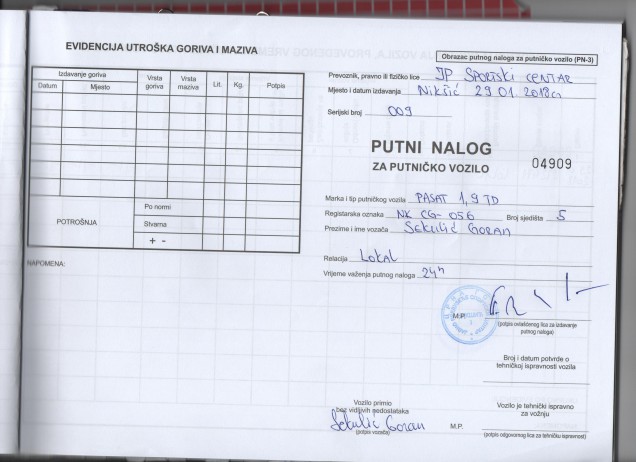 EVIDENCIJA UTROŠKA GORIVA I MAZIVA
Izdavanje goriva
Datum Mjesto Vrsta goriva Vrsta maziva Lit. Kg. Potpis
POTROŠNJA
Po normi
Stvarna
+ -
NAPOMENA:
Obrazac putnog naloga za putničko vozilo (PN-3)
Prevoznik, pravno ili fizičko lice JP SPORTSKI CENTAR
Mjesto i datum izdavanja Nikšić 29 01. 2018g
Serijski broj 009
PUTNI NALOG
ZA PUTNIČKO VOZILO 04909
Marka i tip putničkog vozila PASAT 1,9 TD
Registarska oznaka NK CG-056 Broj sjedišta 5
Prezime i ime vozača SEKULIĆ GORAN
Relacija LOKAL
Vrijeme važenja putnog naloga 24h
M.P.
(potpis ovlašćenog lica za izdavanje
putnog naloga)
Broj i datum potvrde o
tehničkoj ispravnosti vozila
Vozilo primio
bez vidljivih nedostataka
Sekulić Goran
(potpis vozača)
M.P.
Vozilo je tehnički ispravno
za vožnju
(potpis odgovornog lica za tehničku ispravnost)